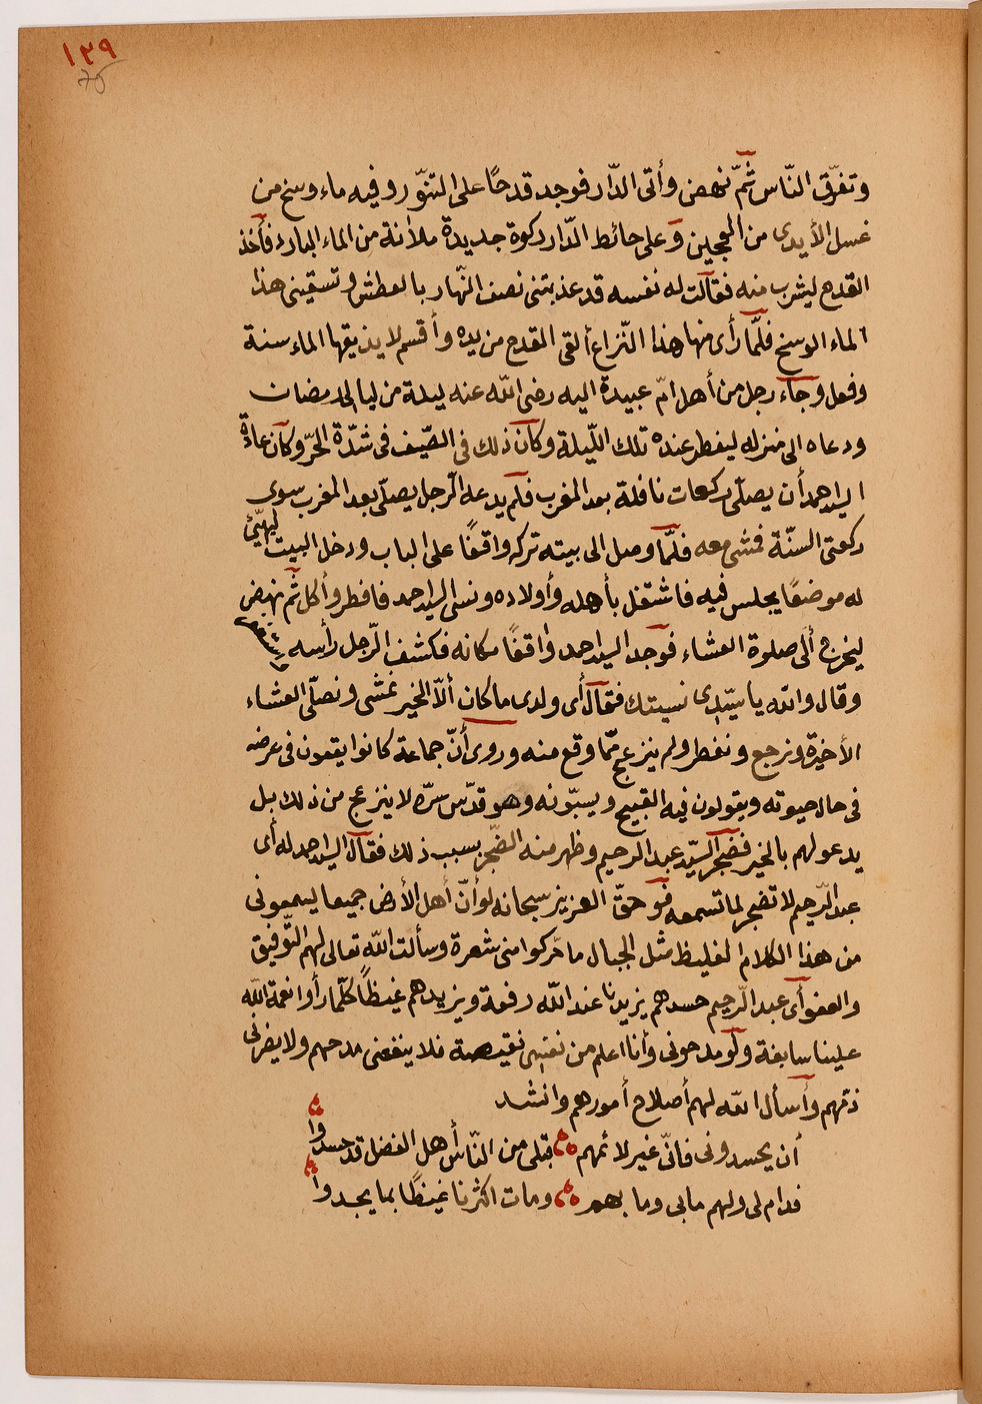 ١٣٩
75
وتفرّق النّاس ثمّ نهض وأتى الدّار فوجد قدحًا على التنّور وفيه ماء وسخ من
غسل الأيدى من العجين وعلى حائط الدّار ركوة جديدة ملآنة من الماء البارد فأخذ
القدح ليشرب منه فقالت له نفسه قد عذبتنى نصف النّهار بالعطش وتسقينى هذا
الماء الوسخ فلمّا رأى منها هذا النّزاع ألقى القدح من يده وأقسم لا يذيقها الماء سنة
وفعل وجاء رجل من أهل امّ عبيدة اليه رضى الله عنه ليلة من ليالى رمضان
ودعاه الى منزله ليفطر عنده تلك اللّيلة وكان ذلك فى الصّيف فى شدّة الحرّ وكان عادة
السيد احمد أن يصلّى ركعات نافلة بعد المغرب فلم يدعه الرّجل يصلّى بعد المغرب سوى
ركعتى السنّة فمشى معه فلمّا وصل الى بيته تركه واقفًا على الباب ودخل البيت ليهيّئ
له موضعًا يجلس فيه فاشتغل بأهله وأولاده ونسى السيد احمد فافطر وأكل ثم نهض
ليخرج ألى صلوة العشاء فوجد السيد احمد واقفًا مكانه فكشف الرّجل رأسه واستغفر
وقال والله يا سيّدى نسيتك فقال أى ولدى ما كان ألاّ الخير نمشى ونصلّى العشاء
الأخيرة ونرجع ونفطر ولم ينزعج ممّا وقع منه وروى أنّ جماعة كانوا يقعون فى عرضه
فى حال حيوته ويقولون فيه القبيح ويسبّونه وهو قدّس سرّه لا ينزعج من ذلك بل
يدعو لهم بالخير فضجر السيّد عبد الرحيم وظهر منه الضّجر بسبب ذلك فقال السيد احمد له أى
عبد الرّحيم لا تضجر لما تسمعه فو حقّ العزيز سبحانه لو أنّ أهل الأرض جميعا يسمعونى
من هذا الكلام الغليظ مثل الجبال ما حركوا منى شعرة وسألت الله تعالى لهم التّوفيق
والعفو أى عبد الرّحيم حسدهم يزيدنا عند الله رفعة ويزيدهم غيظًا كلّما رأوا نعمة الله
علينا سابغة ولو مدحونى وأنا اعلم من نفسى نقيصة فلا ينفعنى مدحهم ولا يضرنى
ذمّهم وأسأل الله لهم أصلاح أمورهم وانشد
أن يحسدونى فانّى غير لائمهم قبلى من النّاس أهل الفضل قد حسدوا
فدام لى ولهم ما بى وما بهم ومات اكثرنا غيظًا بما يجدوا